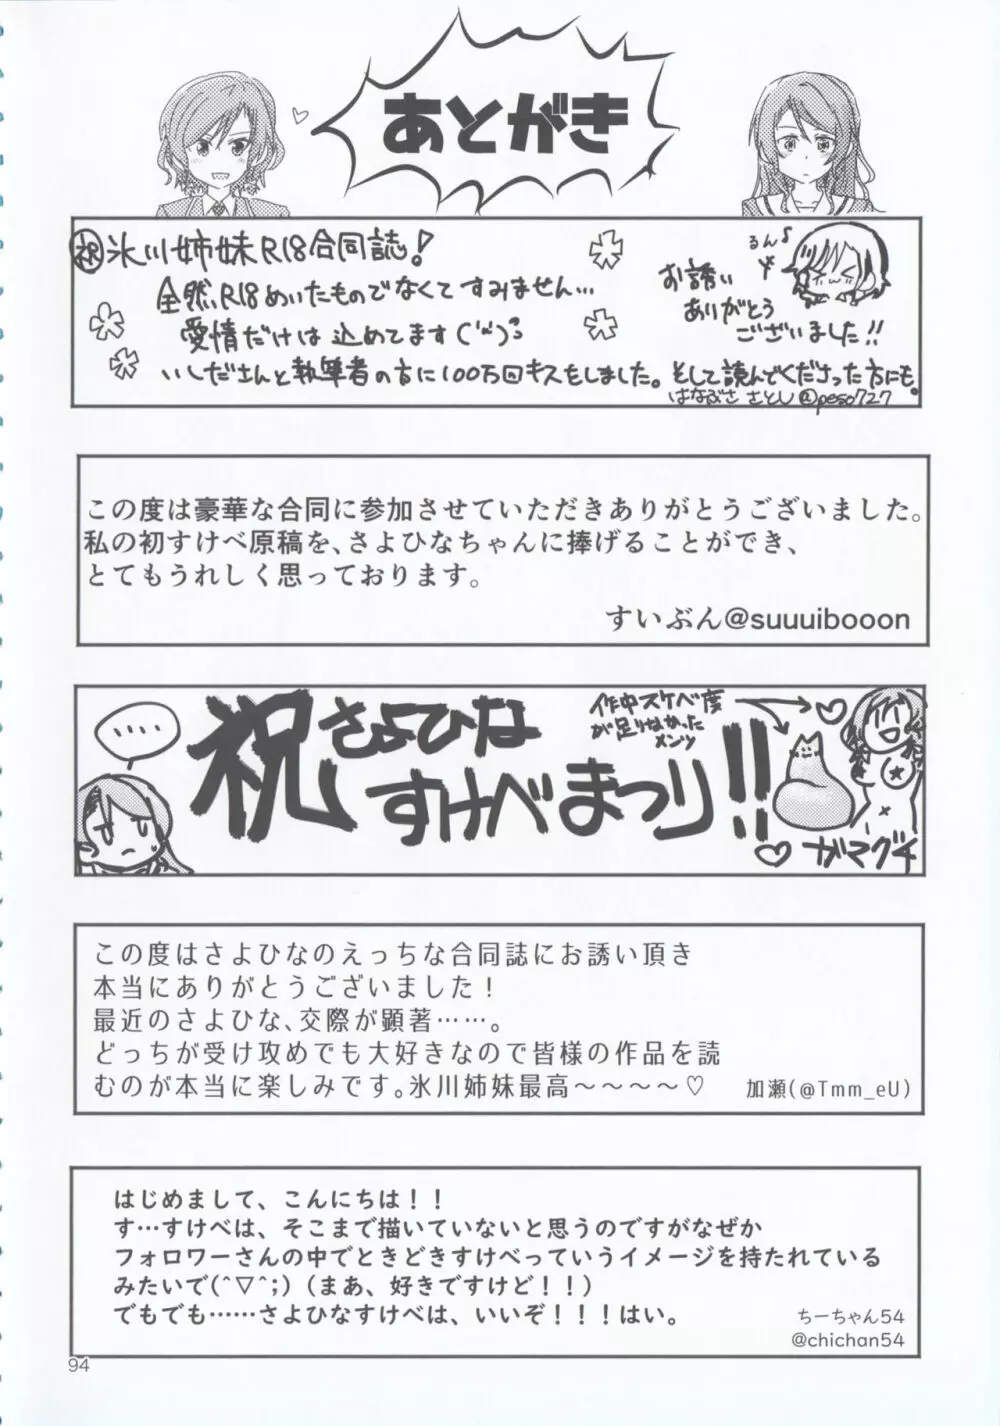 あとがき
㊗氷川姉妹R18合同誌!
全然R18めいたものでなくてすみません…
愛情だけは込めてます
いしださんと執筆者の方に100万回キスをしました。そして読んでくださった方にも。
るん♪
お誘い
ありがとう
ございました!!
はなぶさ さとし@peso727
この度は豪華な合同に参加させていただきありがとうございました。
私の初すけべ原稿を、さよひなちゃんに捧げることができ、
とてもうれしく思っております。
すいぶん@suuuibooon
・・・・
祝さよひな
すけべまつり!!
作中スケベ度
が足りなかった
メンツ
♡ガマグチ
この度はさよひなのえっちな合同誌にお誘い頂き
本当にありがとうございました!
最近のさよひな、交際が顕著……。
どっちが受け攻めでも大好きなので皆様の作品を読
むのが本当に楽しみです。氷川姉妹最高〜〜〜〜♡
加瀬(@Tmm_eU)
はじめまして、こんにちは!!
す…すけべは、そこまで描いていないと思うのですがなぜか
フォロワーさんの中でときどきすけべっていうイメージを持たれている
みたいで(^▽^;)(まあ、好きですけど!!)
でもでも……さよひなすけべは、いいぞ!!!はい。
ちーちゃん54
@chichan54
94